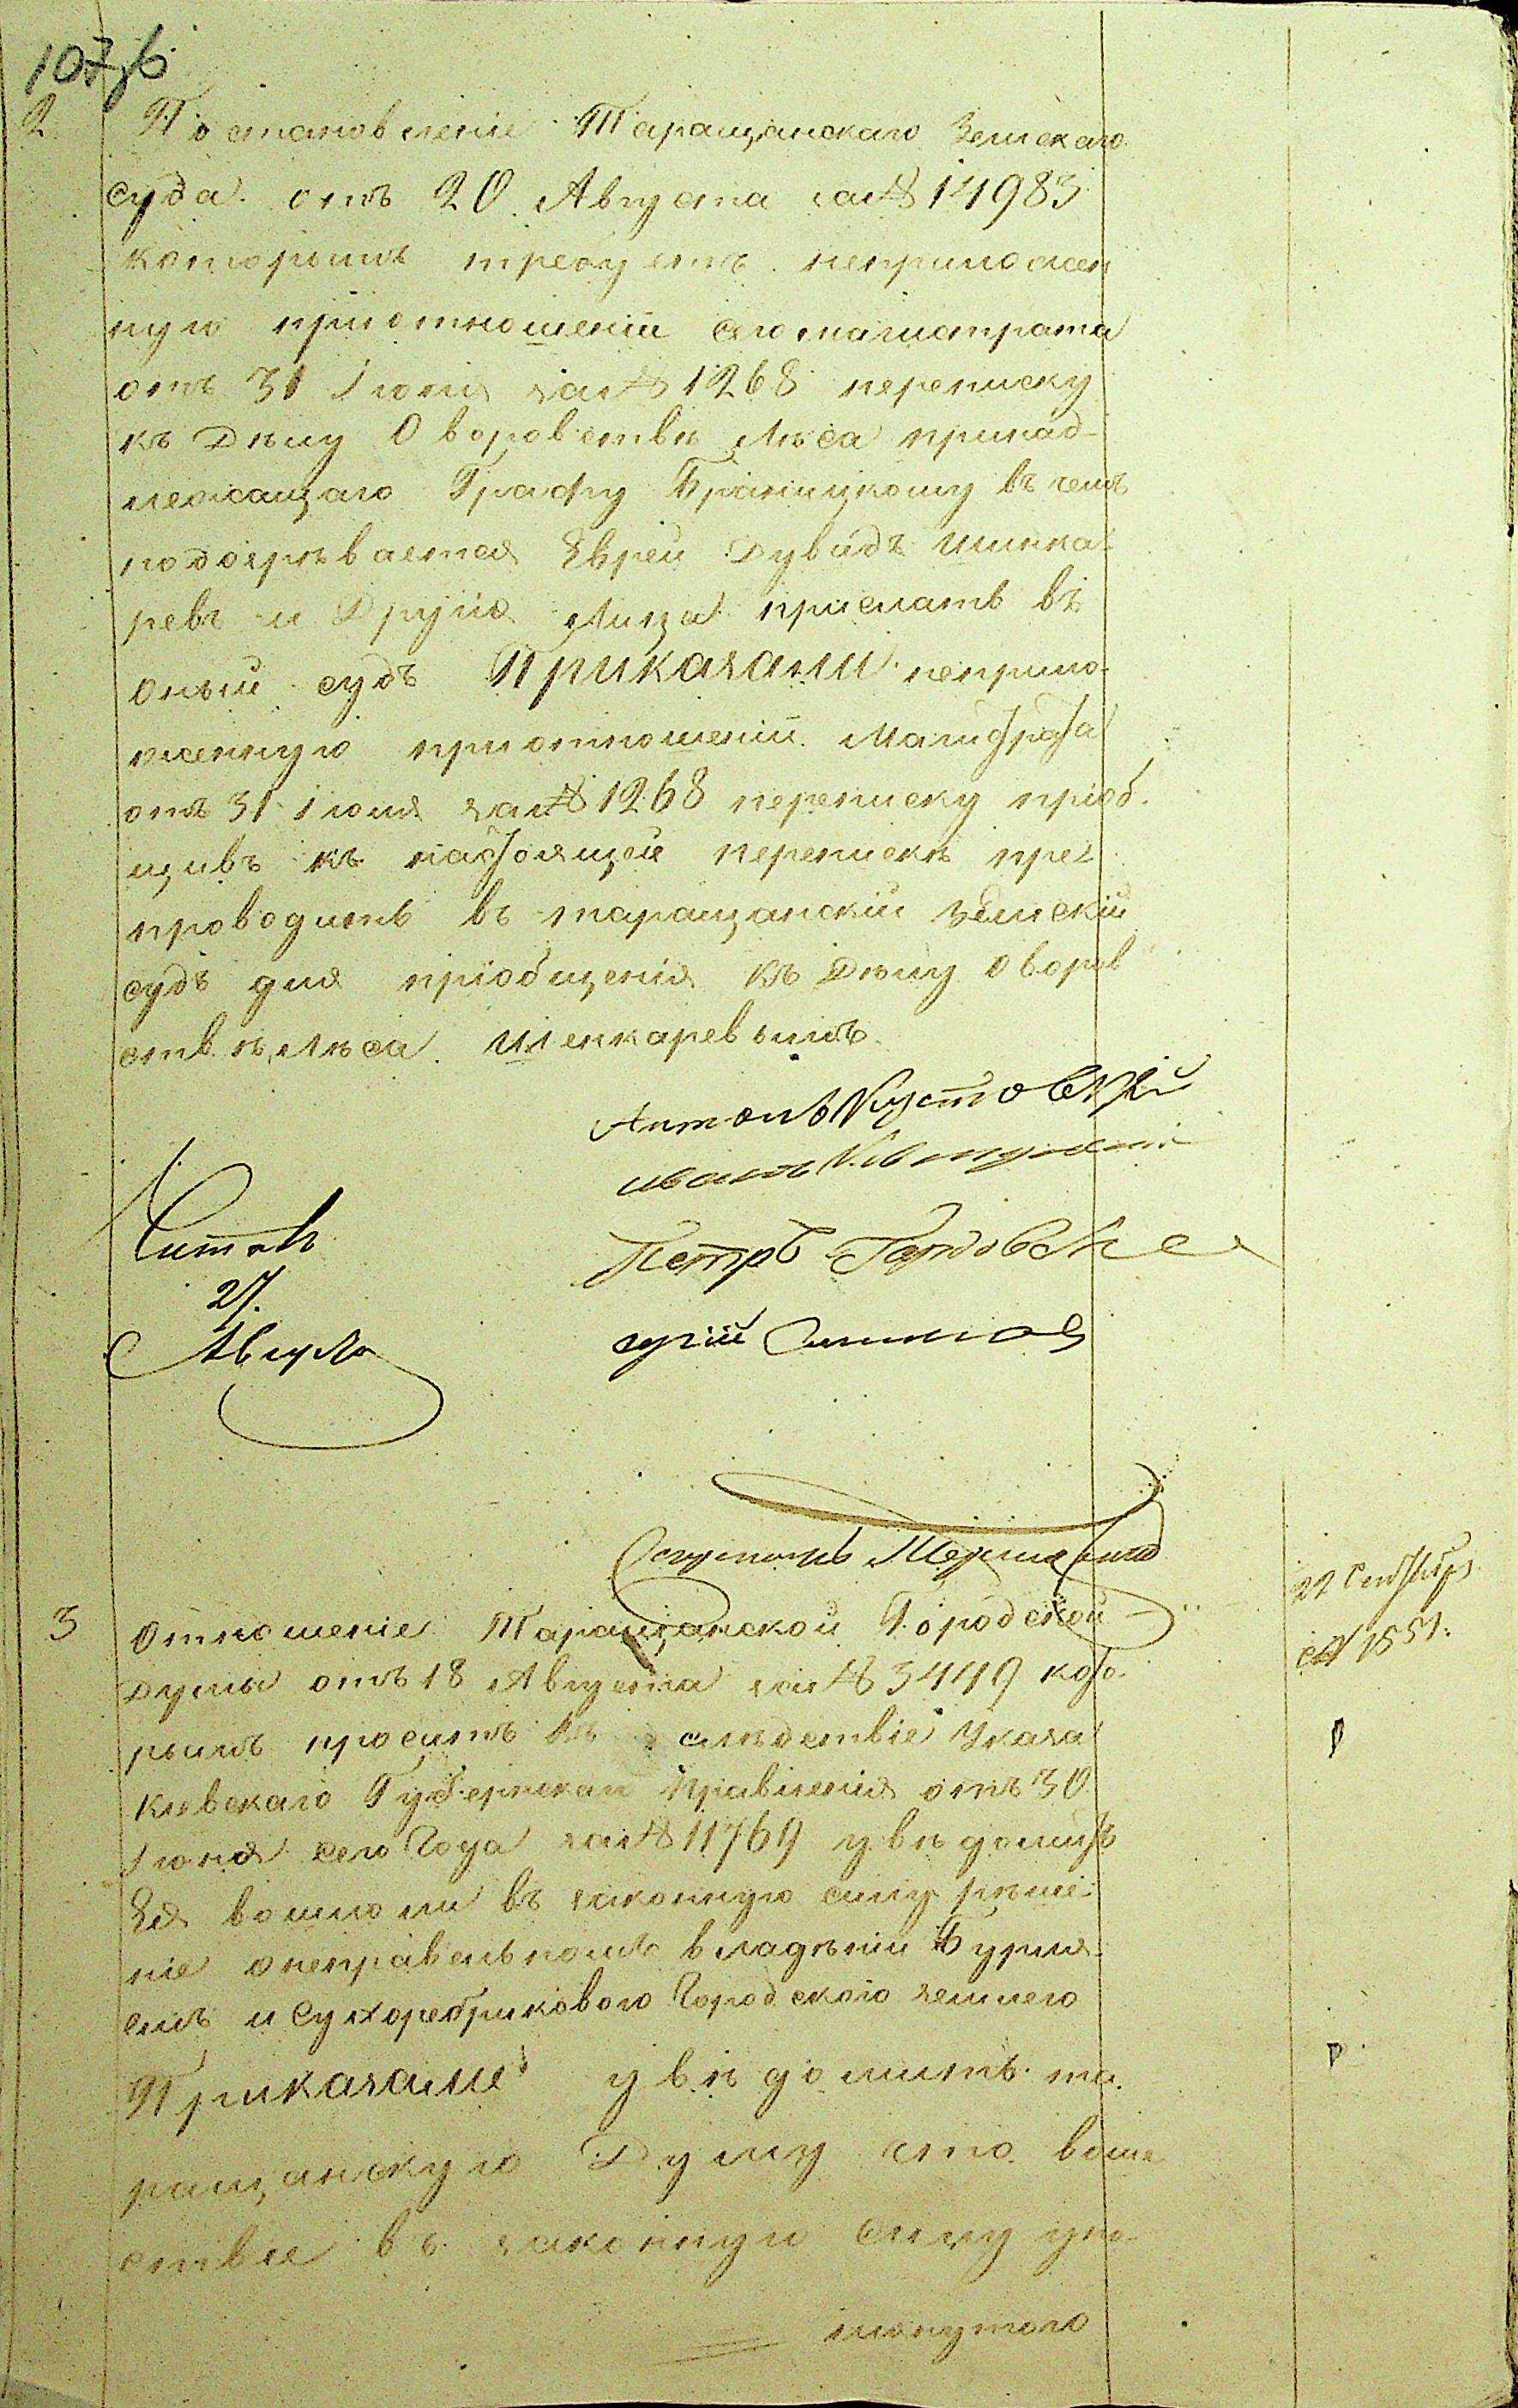 2 Постановленіе Таращанскаго Земскаго
суда отъ 20 Августа за № 14983
которымъ требуетъ неприложен
ную приотношеніи сего магистрата
отъ 31 Іюля за № 1268 переписку
къ Дѣлу О воровствѣ Лѣса принад-
лежащаго Графу Браницкому въ чемъ
подозрѣвается Еврей Дувидъ Шинка-
ревъ и Другіе Лица прислать въ
оный судъ Приказали неприло-
женную приотношеніи Магистрата
отъ 31 Іюля за № 1268 переписку пріоб-
щивъ къ настоящей перепискѣ пре
проводить въ таращанскій Земскій
судъ для пріобщенія къ Дѣлу о воров
ствѣ Лѣса Шенкаревымъ
Антонъ
Иванъ
Читалъ
Петръ
27
Августа
3 Отношеніе Таращанской Городской
Думы отъ 18 Августа за № 3449 кото-
рымъ проситъ въ слѣдствіе Указа
Кіевскаго Губернскаго Правленія отъ 30
Іюня сего Года за № 11769 увѣдомить
Ея вошло ли въ законную силу рѣше-
ніе онеправельномъ владѣніи Бурля-
емъ и Сухоребриковою Городскою землею
22 Сентября
1851.
Приказали увѣдомить та-
ращанскую Думу что воше
ствіе въ законную силу упо-
мянутого